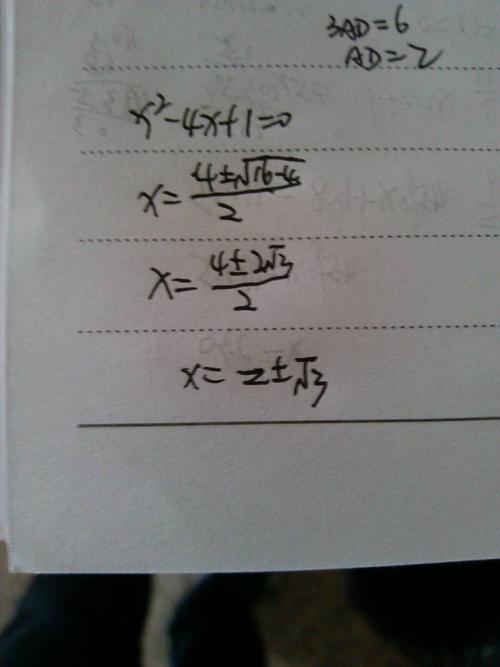 3AD=6
AD=2
x²-4x+1=0
x=\frac{4±\sqrt{16-4}}{2}
x=\frac{4±2\sqrt{3}}{2}
x=2±\sqrt{3}